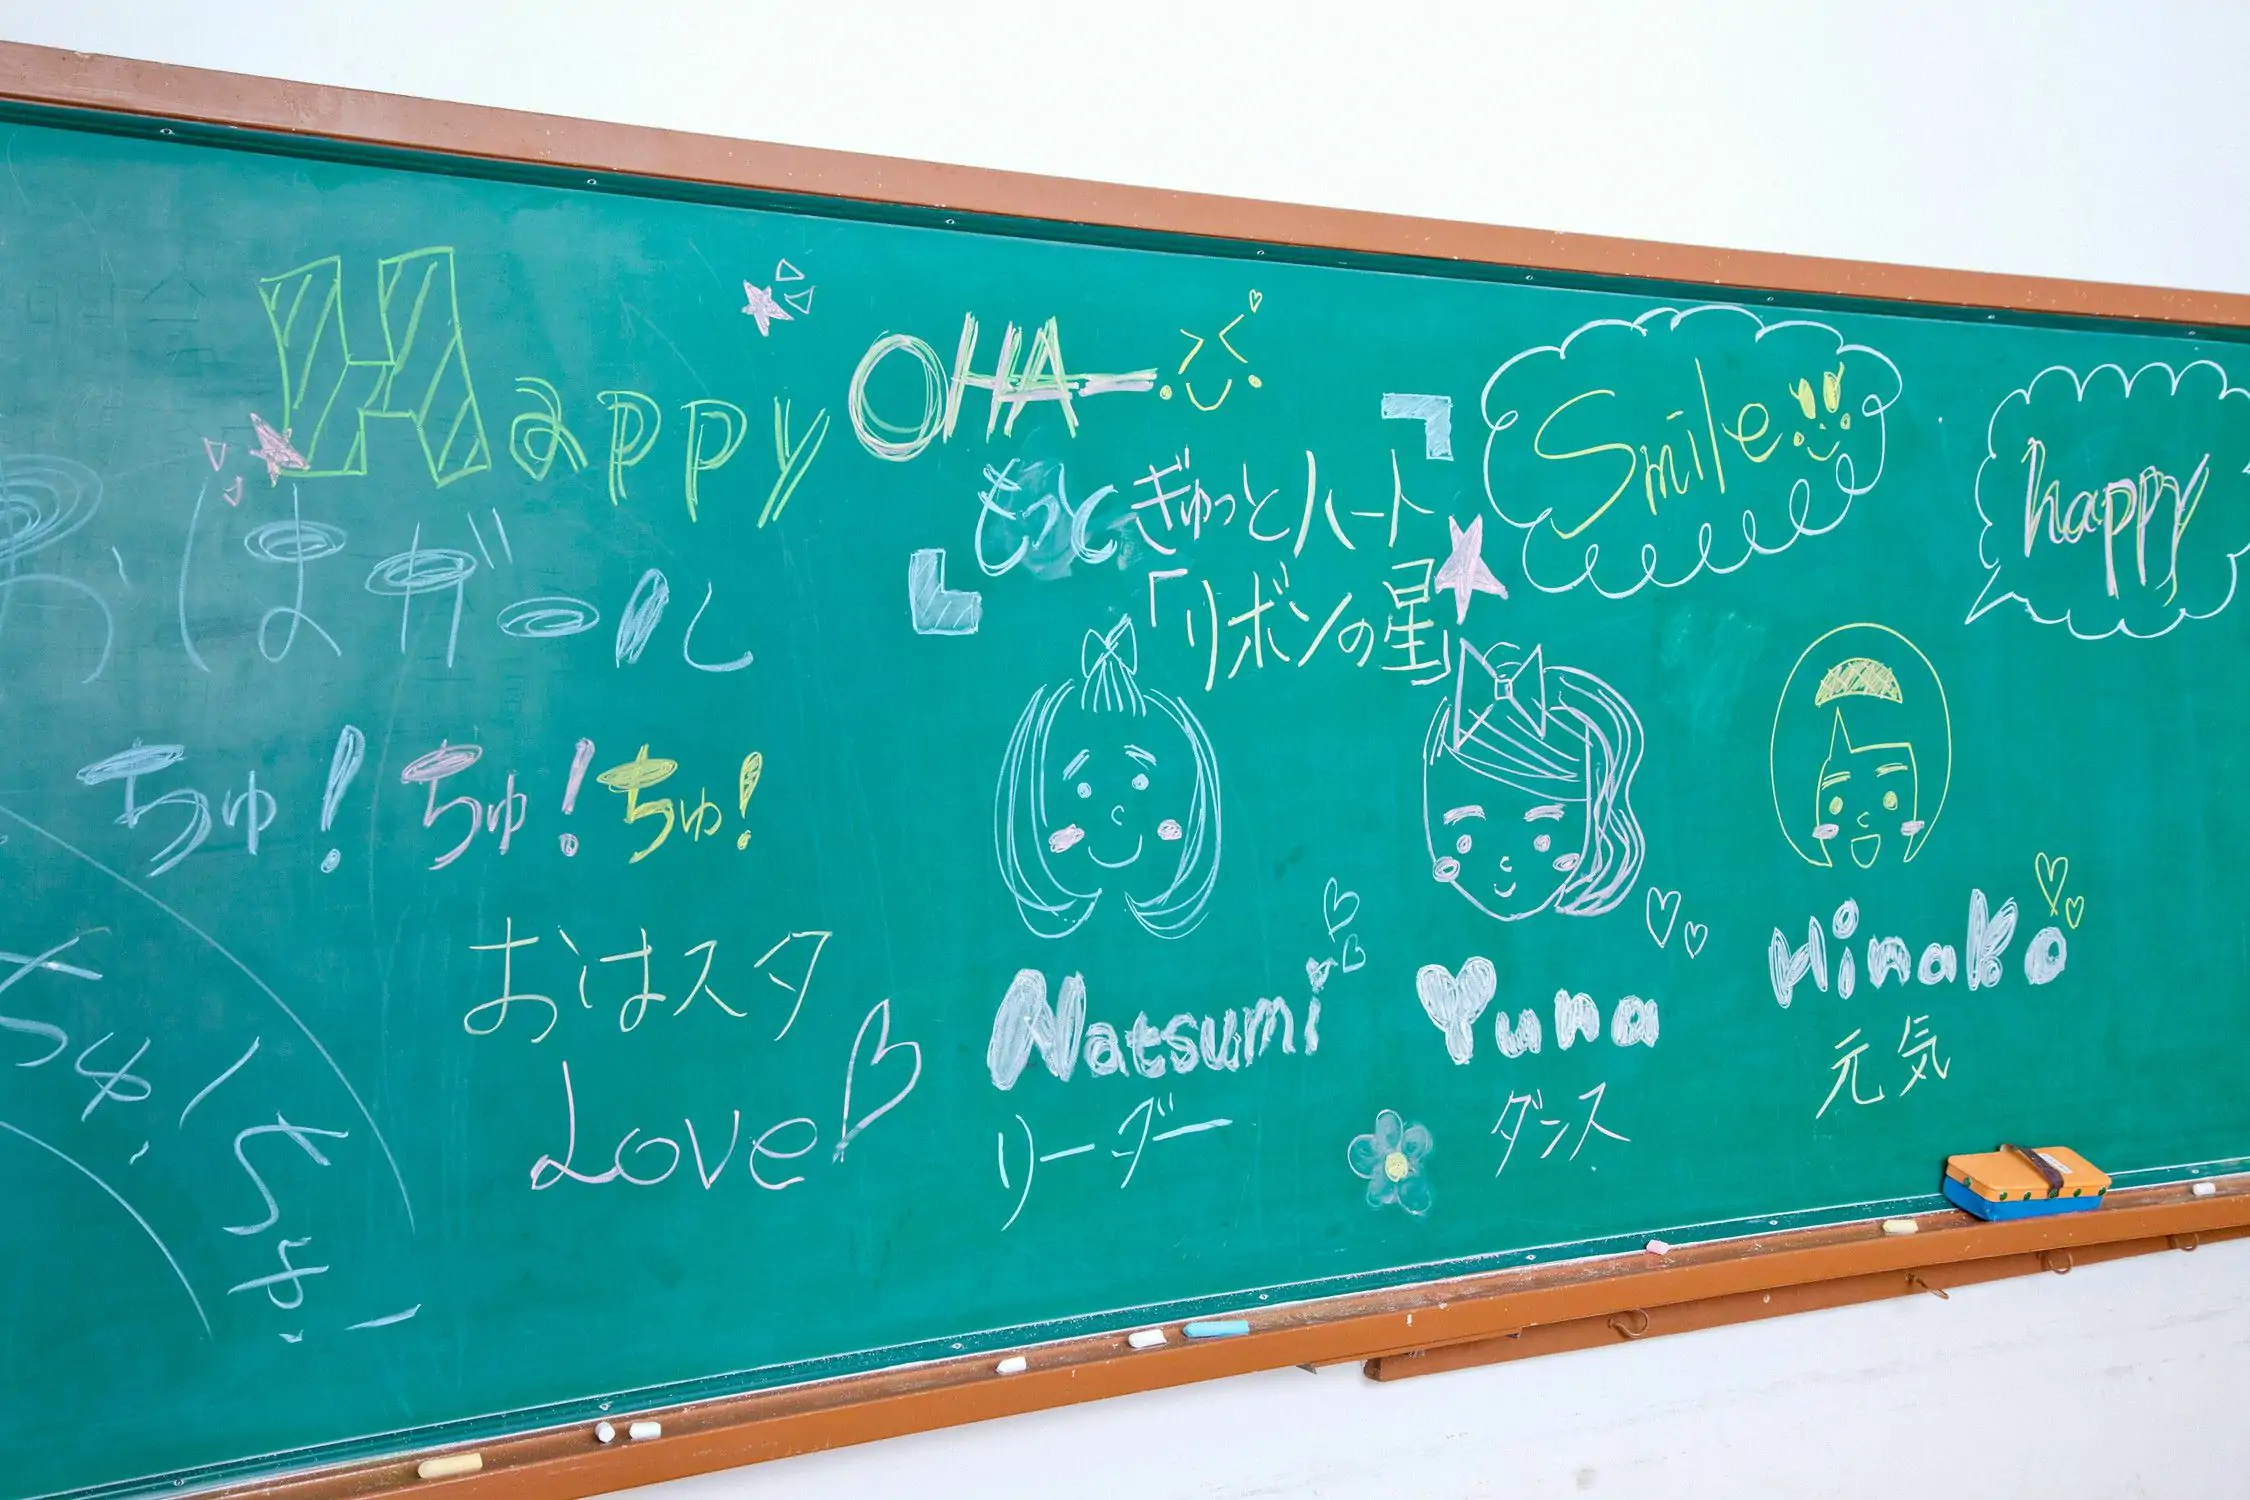 Happy
おはガール
ちゅ!ちゅ!ちゅ!
おはスタ
Love
ちゅ!ちゅ!
OHAー
もっとぎゅっとハート
「リボンの星」
Smile
happy
Natsumi
リーダー
Yuna
ダンス
Hinako
元気